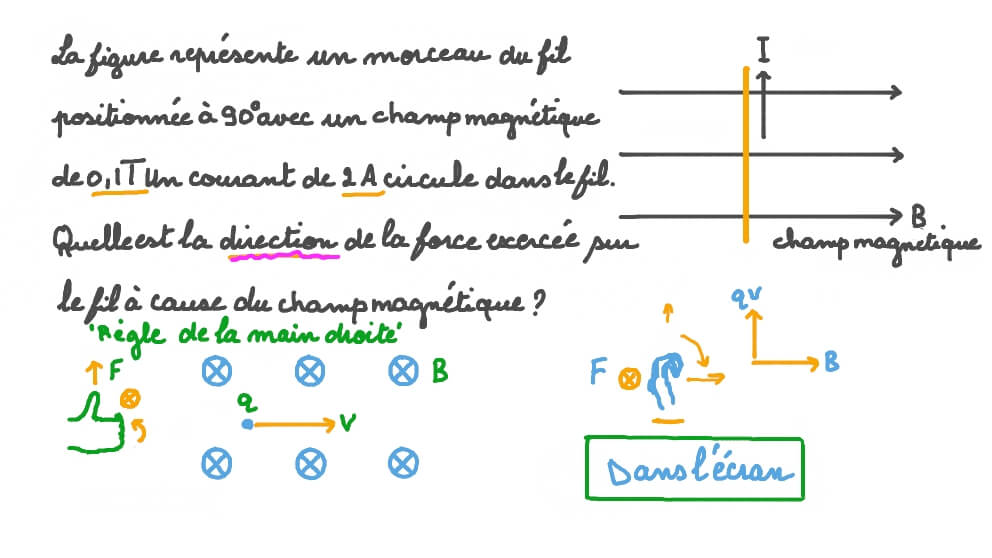 La figure représente un morceau du fil
positionnée à 90° avec un champ magnétique
de 0,1T un courant de 2 A circule dans le fil.
Quelle est la direction de la force exercée sur
le fil à cause du champ magnétique ?
I
B
champ magnétique
'Règle de la main droite'
F
B
q
v
qv
B
F
Dans l'écran